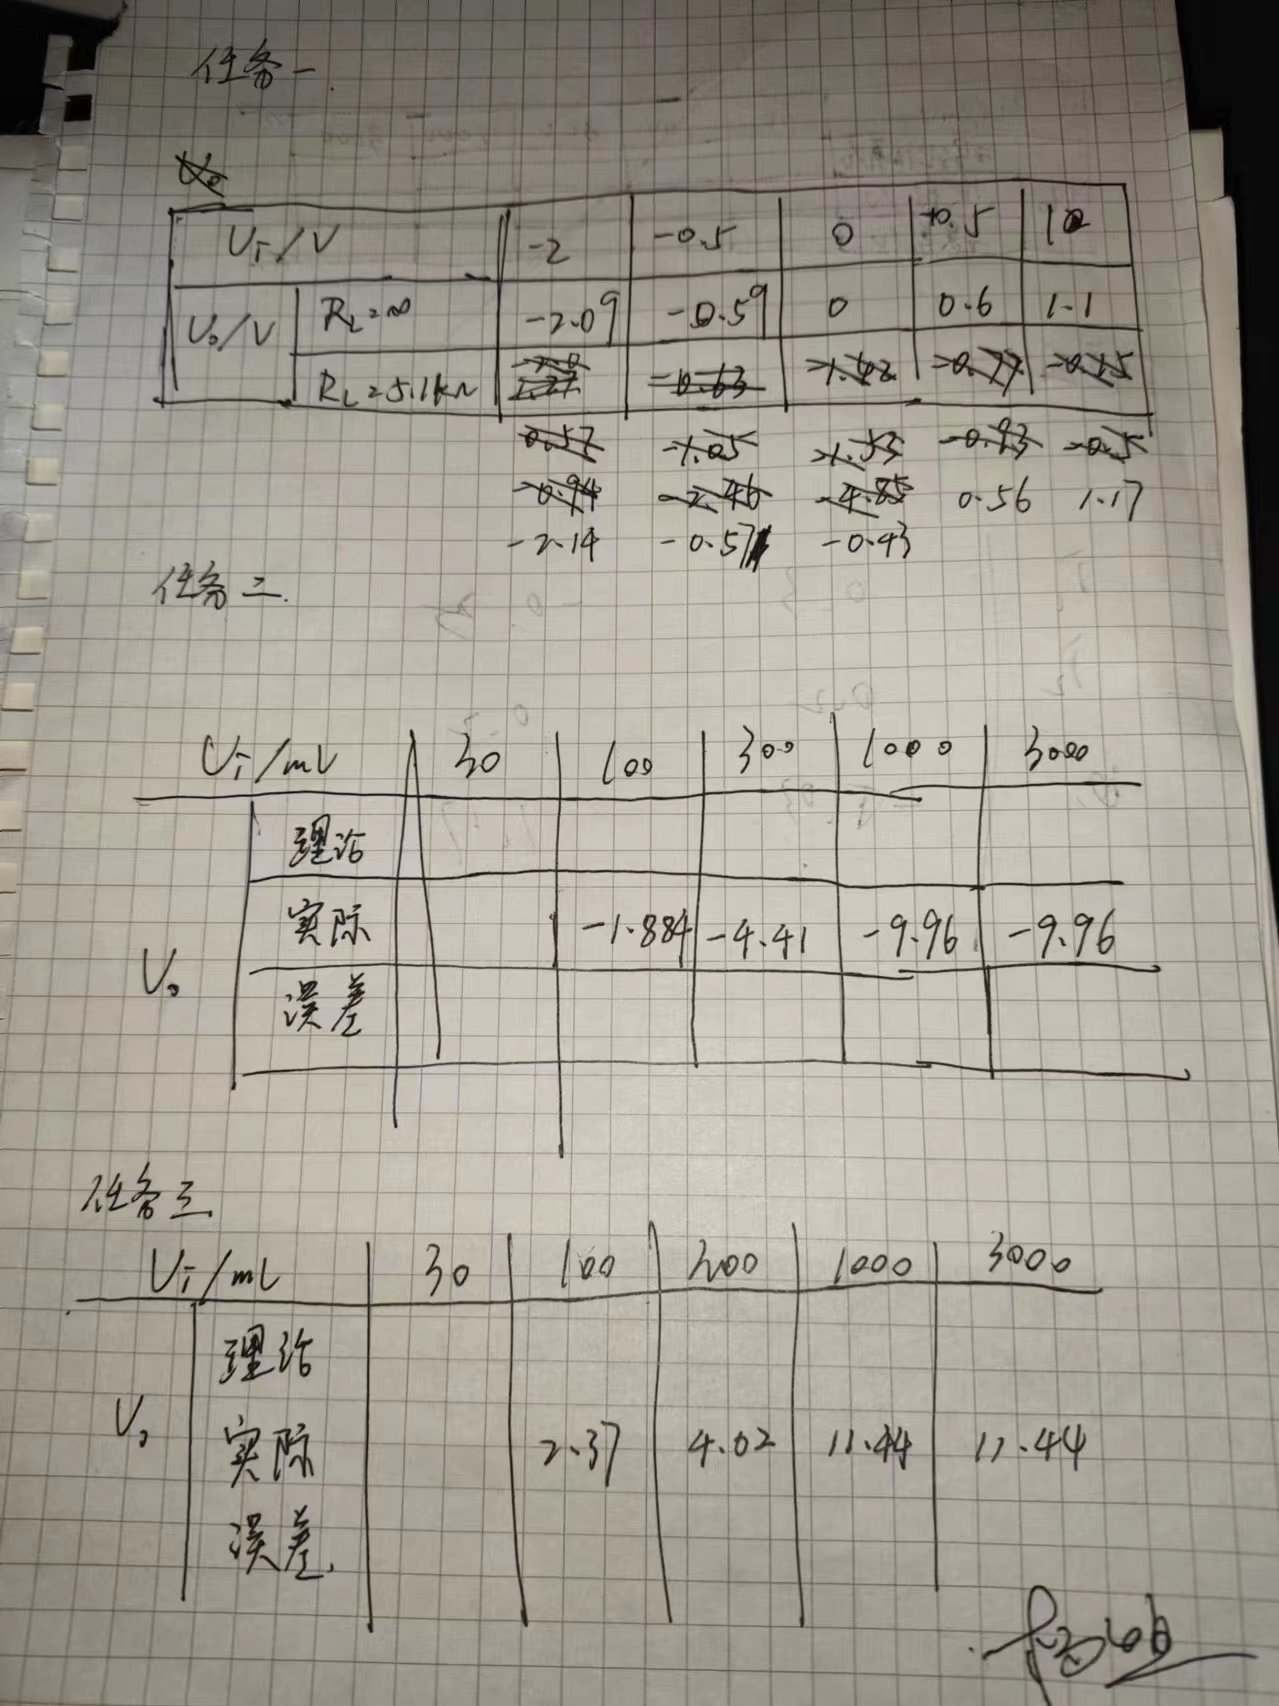 任务一.
Ui/V -2 -0.5 0 +0.5 1
Uo/V RL=∞ -2.09 -0.59 0 0.6 1.1
RL=5.1kΩ -0.63 -1.42 -0.77 -0.15
0.57 -1.05 -1.53 -0.93 -0.5
-0.94 -2.46 -4.85 0.56 1.17
-2.14 -0.57 -0.43
任务二.
Ui/mV 30 100 300 1000 3000
理论
实际 -1.884 -4.41 -9.96 -9.96
Uo
误差
任务三.
Ui/mV 30 100 300 1000 3000
理论
Uo
实际 2.37 4.02 11.44 11.44
误差.